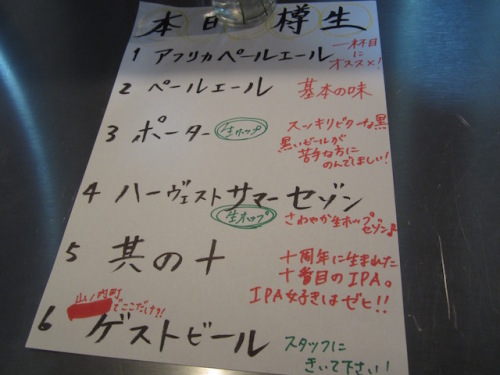 本日樽生
1 アフリカペールエール
一杯目
に
オススメ!
2 ペールエール
基本の味
3 ポーター
生ホップ
スッキリビターな黒
黒いビールが
苦手な方に
のんでほしい!
4 ハーヴェストサマーセゾン
生ホップ
さわやか生ホップ
セゾン♪
5 其の十
十周年に生まれた
十番目のIPA。
IPA好きはゼヒ!!
山ノ内町
でここだけ?!
6 ゲストビール
スタッフに
きいて下さい!